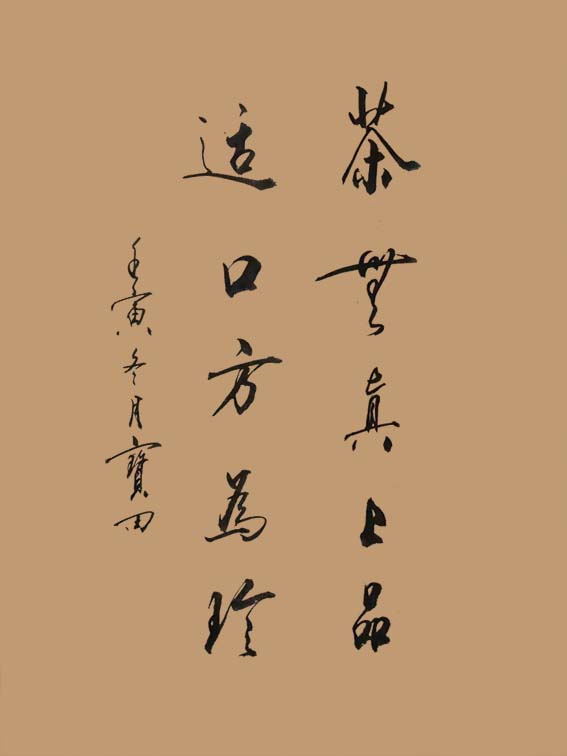 茶無真上品
适口方為珍
壬寅冬月寶田